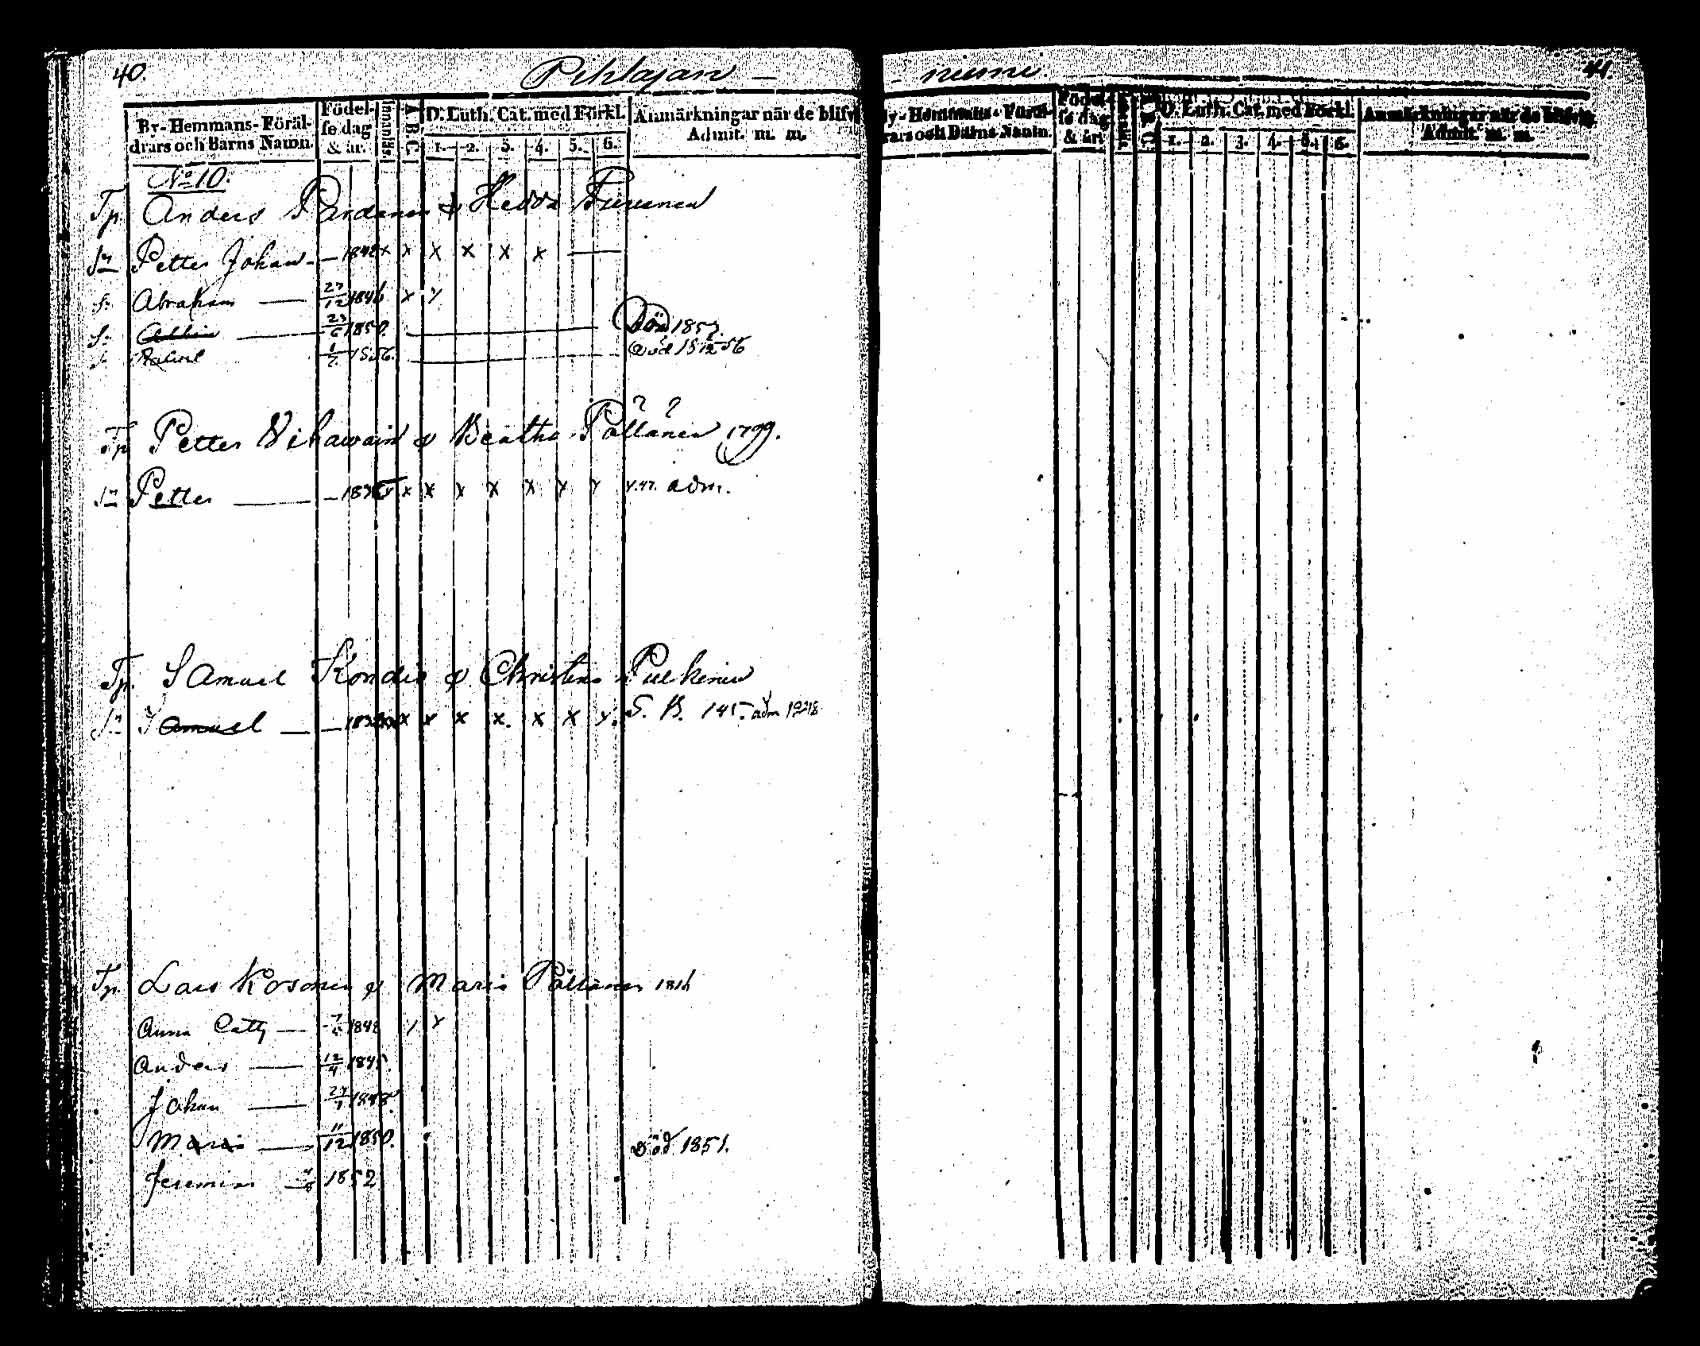 40.
Pihlajan —
By- Hemmans- Föräl-
drars och Barns Namn.
Födel-
se dag
& år.
Innanläs.
A B C.
D. Luth. Cat. med Förkl.
1. 2. 3. 4. 5. 6.
Anmärkningar när de blifv
Admit. m. m.
No 10.
Tp. Anders Pardanen & Hedda
Sn Petter Johan — 1842 x x x x x x —
S. Abraham — 27/12 1846 x x
S. Albin — 23/6 1850. — Död 1857.
1856. — Död 15/12 56
Tp Petter & Beatha Pöllänen 1799.
Sn Petter — x x x x x x x adm.
Tp. Samuel Kondia & Christina Pulkinen
Sn Samuel — x x x x x x x S. B. 145. adm
Tp. Lars Kosonen & Maria Pöllänen 1816
Anna Cath — 1843 / x
Anders — 12/4 1845.
Johan — 1848
Maria — 11/12 1850. Död 1851.
Jeremias — 1852
— niemi
41.
By- Hemmans- Föräl-
drars och Barns Namn.
Födel-
se dag
& år.
D. Luth. Cat. med Förkl.
1. 2. 3. 4. 5. 6.
Anmärkningar när de blifvit
Admit. m. m.